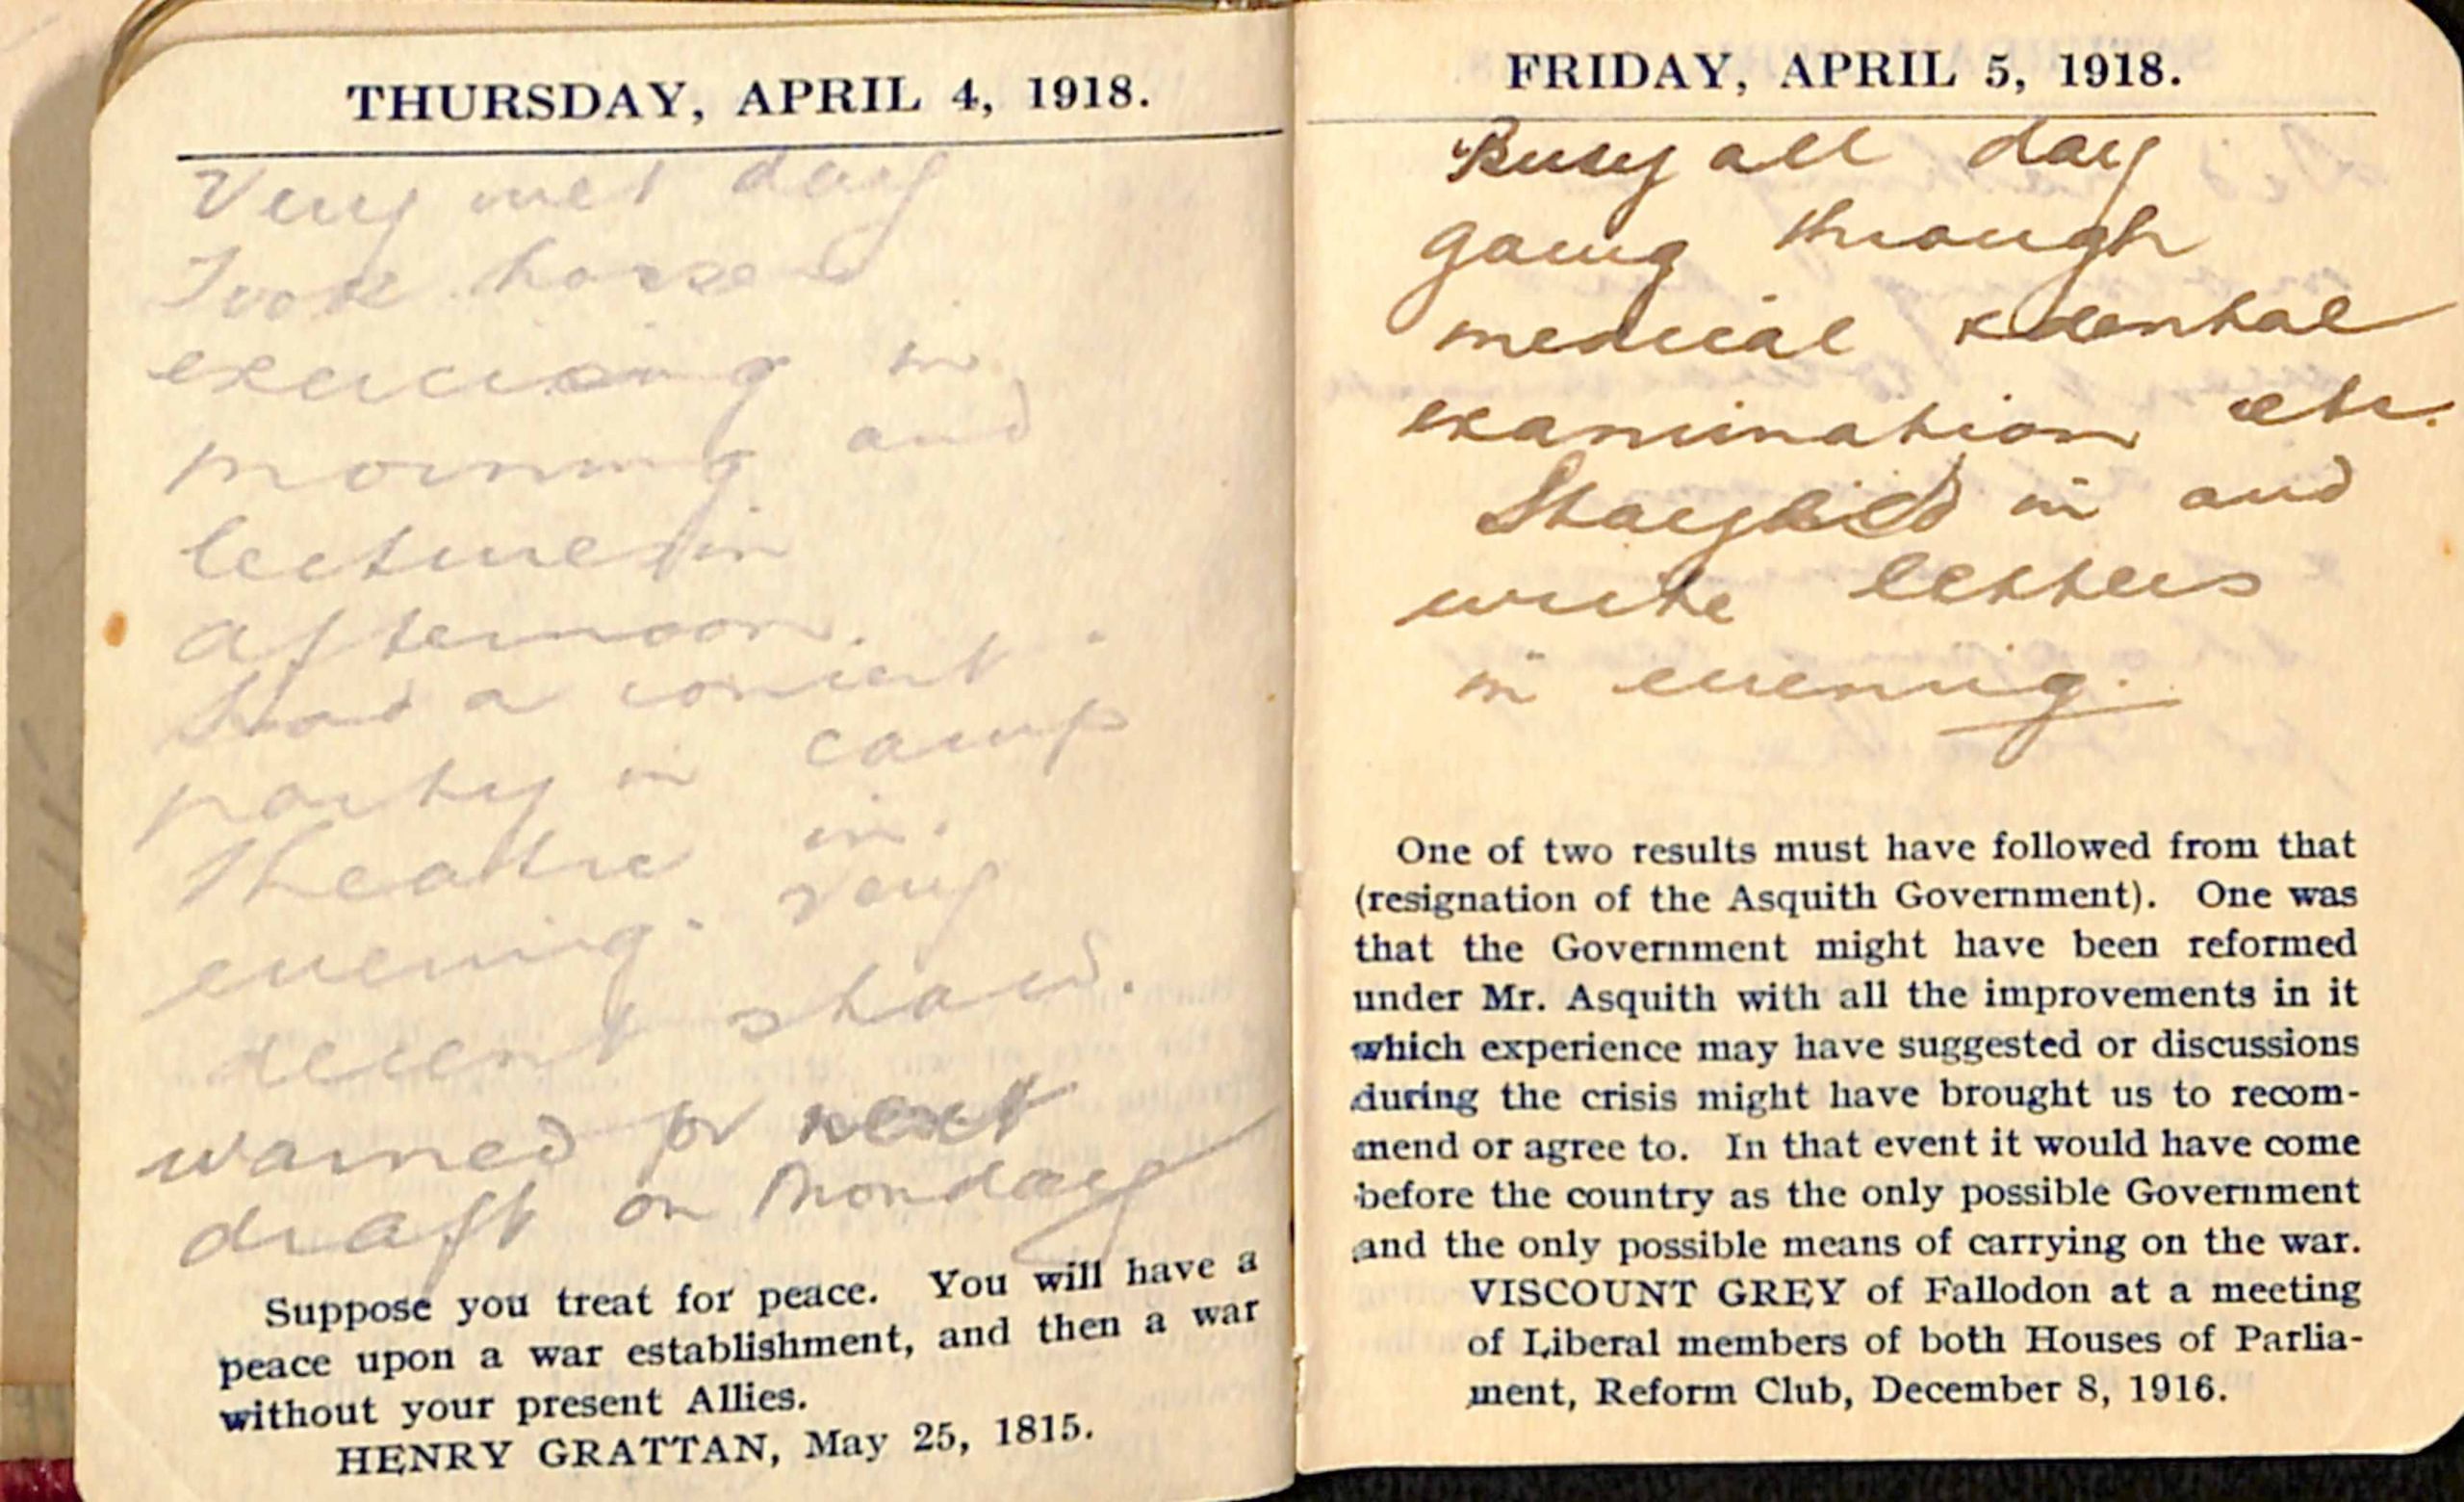 THURSDAY, APRIL 4, 1918.
Very wet day
Took horse
exercising in
morning and
lectures in
afternoon.
Had a concert
party in camp
Theatre in
evening. Very
decent show.
warned for next
draft on Monday
Suppose you treat for peace. You will have a
peace upon a war establishment, and then a war
without your present Allies.
HENRY GRATTAN, May 25, 1815.
FRIDAY, APRIL 5, 1918.
Busy all day
going through
medical & dental
examination etc.
Stayed in and
write letters
in evening.
One of two results must have followed from that
(resignation of the Asquith Government). One was
that the Government might have been reformed
under Mr. Asquith with all the improvements in it
which experience may have suggested or discussions
during the crisis might have brought us to recom-
mend or agree to. In that event it would have come
before the country as the only possible Government
and the only possible means of carrying on the war.
VISCOUNT GREY of Fallodon at a meeting
of Liberal members of both Houses of Parlia-
ment, Reform Club, December 8, 1916.